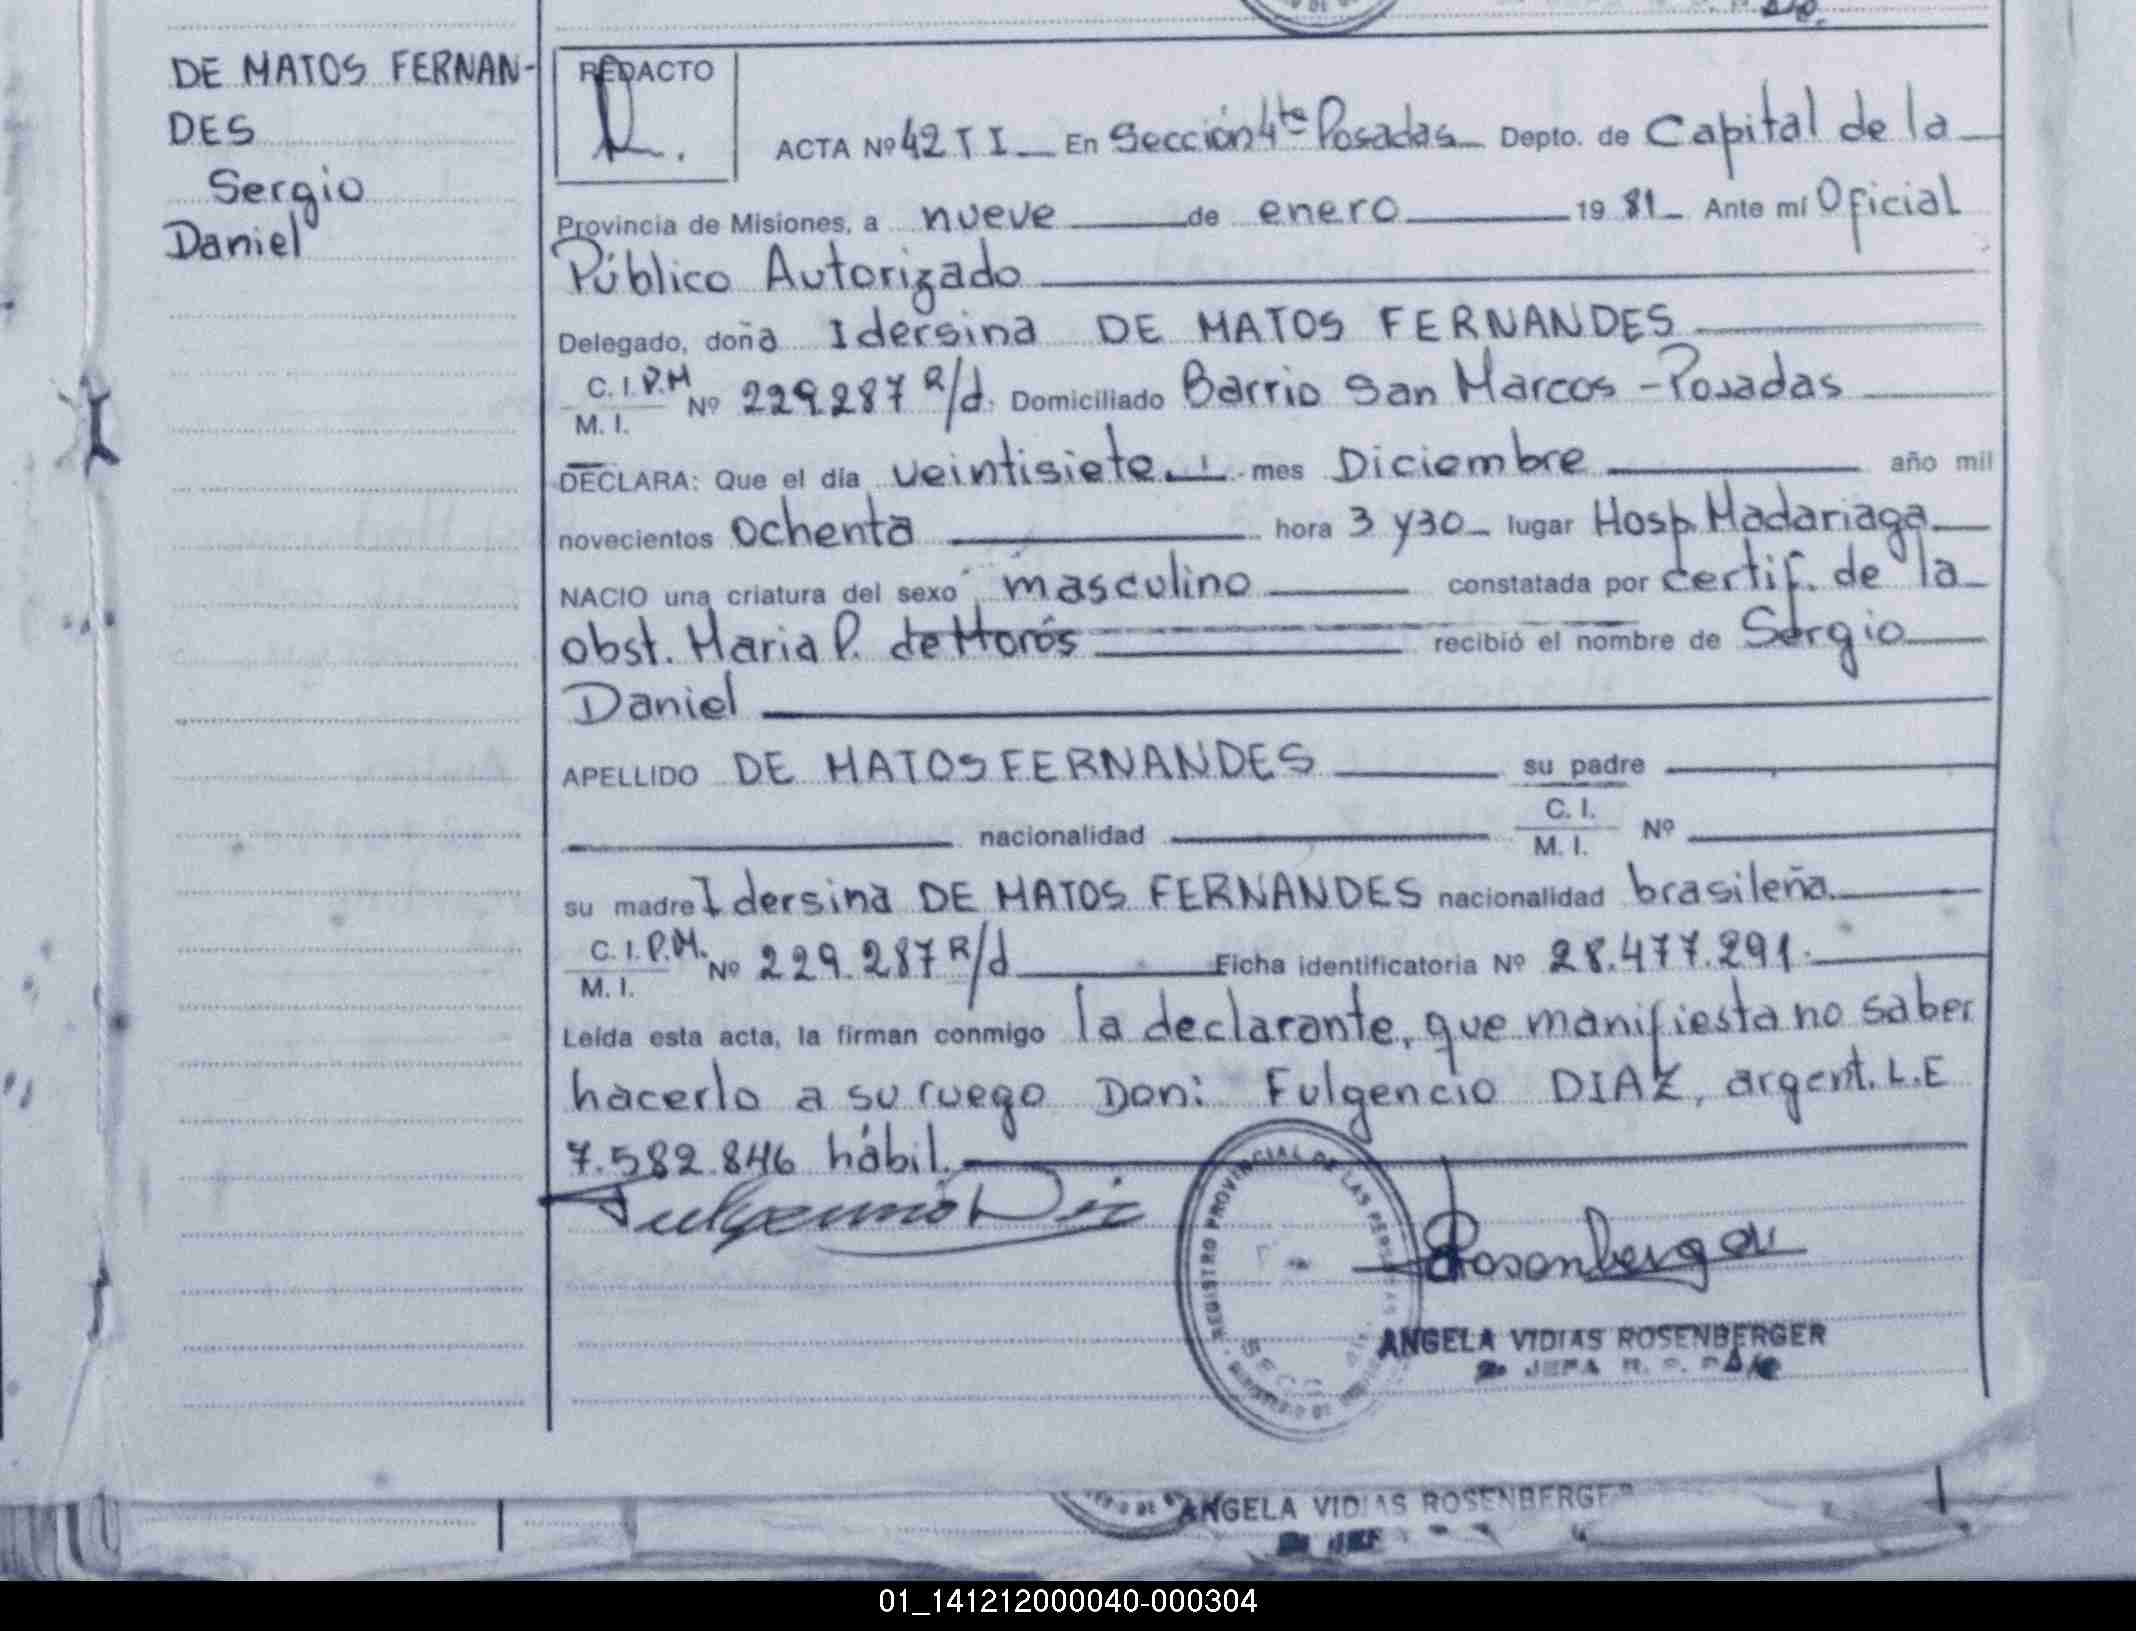 DE MATOS FERNAN-
DES
Sergio
Daniel
REDACTO
ACTA Nº 42 T I En Sección 4ta Posadas Depto. de Capital de la
Provincia de Misiones, a nueve de enero 19 81 Ante mí Oficial
Público Autorizado
Delegado, doña Idersina DE MATOS FERNANDES
C. I. P.M
M. I. Nº 229.287 R/d. Domiciliado Barrio San Marcos - Posadas
DECLARA: Que el día veintisiete mes Diciembre año mil
novecientos ochenta hora 3 y 30 lugar Hosp. Madariaga
NACIO una criatura del sexo masculino constatada por certif. de la
obst. Maria P. de Morós recibió el nombre de Sergio
Daniel
APELLIDO DE MATOS FERNANDES su padre
nacionalidad C. I.
M. I. Nº
su madre Idersina DE MATOS FERNANDES nacionalidad brasileña.
C. I. P.M.
M. I. Nº 229.287 R/d Ficha identificatoria Nº 28.477.291.
Leída esta acta, la firman conmigo la declarante, que manifiesta no saber
hacerlo a su ruego Don: Fulgencio DIAZ, argent. L.E
7.582.846 hábil.
REGISTRO PROVINCIAL DE LAS PERSONAS
Rosenberger
ANGELA VIDIAS ROSENBERGER
JEFA R. P.
ANGELA VIDIAS ROSENBERGER
01_141212000040-000304